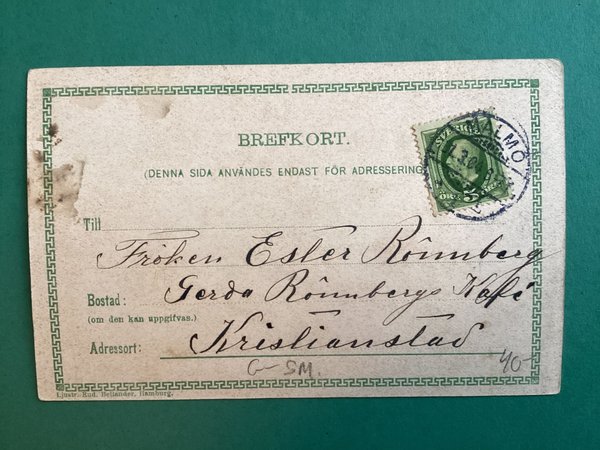 BREFKORT.
(DENNA SIDA ANVÄNDES ENDAST FÖR ADRESSERING
SVERIGE
5
ÖRE
MALMÖ
Till
Fröken Ester Rönnberg
Bostad: Gerda Rönnbergs Kafé
(om den kan uppgifvas.)
Adressort: Kristianstad
G- SM.
40-
Ljustr. Rud. Bellander, Hamburg.